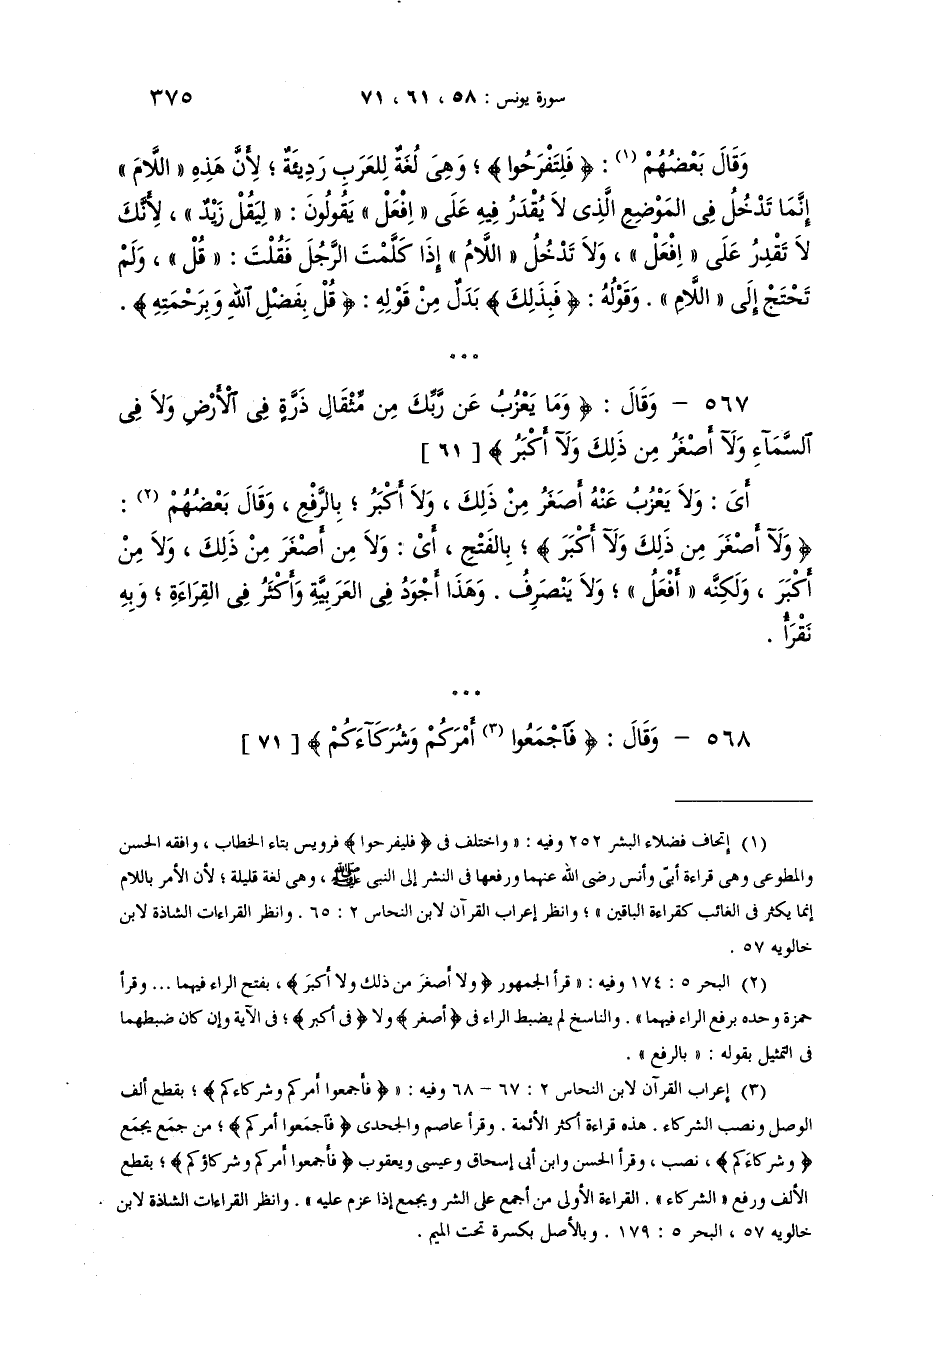 سورة يونس : ٥٨ ، ٦١ ، ٧١ ٣٧٥
وَقَالَ بَعْضُهُمْ (١) : ﴿ فَلِتَفْرَحُوا ﴾ ؛ وَهِىَ لُغَةٌ لِلعَرَبِ رَدِيئَةٌ ؛ لِأَنَّ هَذِهِ « اللَّامَ »
إِنَّمَا تَدْخُلُ فِى المَوْضِعِ الَّذِى لاَ يُقْدَرُ فِيهِ عَلَى « اِفْعَلْ » يَقُولُونَ : « لِيَقُلْ زَيْدٌ » ، لِأَنَّكَ
لاَ تَقْدِرُ عَلَى « اِفْعَلْ » ، وَلاَ تَدْخُلُ « اللَّامُ » إِذَا كَلَّمْتَ الرَّجُلَ فَقُلْتَ : « قُلْ » ، وَلَمْ
تَحْتَجْ إِلَى « اللَّامِ » . وَقَوْلُهُ : ﴿ فَبِذَلِكَ ﴾ بَدَلٌ مِنْ قَوْلِهِ : ﴿ قُلْ بِفَضْلِ اللهِ وَبِرَحْمَتِهِ ﴾ .
• • •
٥٦٧ – وَقَالَ : ﴿ وَمَا يَعْزُبُ عَن رَّبِّكَ مِن مِّثْقَالِ ذَرَّةٍ فِى ٱلْأَرْضِ وَلاَ فِى
ٱلسَّمَآءِ وَلَآ أَصْغَرُ مِن ذَلِكَ وَلَآ أَكْبَرُ ﴾ [ ٦١ ]
أَىَ : وَلاَ يَعْزُبُ عَنْهُ أَصغَرُ مِنْ ذَلِكَ ، وَلاَ أَكْبَرُ ؛ بِالرَّفْعِ ، وَقَالَ بَعْضُهُمْ (٢) :
﴿ وَلَآ أَصْغَرَ مِن ذَلِكَ وَلَآ أَكْبَرَ ﴾ ؛ بِالفَتْحِ ، أَىْ : وَلاَ مِن أَصْغَرَ مِنْ ذَلِكَ ، وَلاَ مِنْ
أَكْبَرَ ، وَلَكِنَّه « أَفْعَلُ » ؛ وَلاَ يَنْصَرِفُ . وَهَذَا أَجْوَدُ فِى العَرَبِيَّةِ وَأَكْثَرُ فِى القِرَاءَةِ ؛ وَبِهِ
نَقْرَأُ .
• • •
٥٦٨ – وَقَالَ : ﴿ فَٱجْمَعُوا (٣) أَمْرَكُمْ وَشُرَكَآءَكُمْ ﴾ [ ٧١ ]
(١) إتحاف فضلاء البشر ٢٥٢ وفيه : « واختلف فى ﴿ فليفرحوا ﴾ فرويس بتاء الخطاب ، وافقه الحسن
والمطوعى وهى قراءة أبىّ وأنس رضى الله عنهما ورفعها فى النشر إلى النبى ﷺ ، وهى لغة قليلة ؛ لأن الأمر باللام
إنما يكثر فى الغائب كقراءة الباقين » ؛ وانظر إعراب القرآن لابن النحاس ٢ : ٦٥ . وانظر القراءات الشاذة لابن
خالويه ٥٧ .
(٢) البحر ٥ : ١٧٤ وفيه : « قرأ الجمهور ﴿ ولا أصغرَ من ذلك ولا أكبرَ ﴾ ، بفتح الراء فيهما ... وقرأ
حمزة وحده برفع الراء فيهما » . والناسخ لم يضبط الراء فى ﴿ أصغر ﴾ ولا ﴿ فى أكبر ﴾ ؛ فى الآية وإن كان ضبطهما
فى التمثيل بقوله : « بالرفع » .
(٣) إعراب القرآن لابن النحاس ٢ : ٦٧ – ٦٨ وفيه : « ﴿ فأجمعوا أمركم وشركاءكم ﴾ ؛ بقطع ألف
الوصل ونصب الشركاء . هذه قراءة أكثر الأئمة . وقرأ عاصم والجحدى ﴿ فآجمَعوا أمركم ﴾ ؛ من جمَع يجمَع
﴿ وشركاءَكم ﴾ ، نصب ، وقرأ الحسن وابن أبى إسحاق وعيسى ويعقوب ﴿ فأجمعوا أمركم وشركاؤكم ﴾ ؛ بقطع
الألف ورفع « الشركاء » . القراءة الأولى من أجمع على الشر ويجمع إذا عزم عليه » . وانظر القراءات الشاذة لابن
خالويه ٥٧ ، البحر ٥ : ١٧٩ . وبالأصل بكسرة تحت الميم .